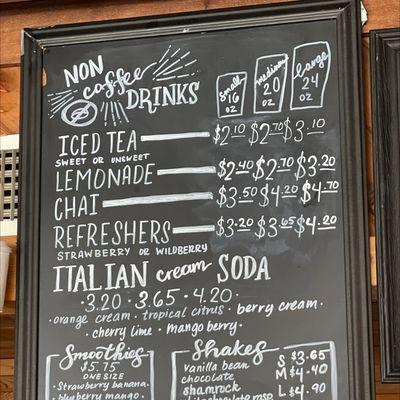 NON
coffee
DRINKS
small 16 oz
medium 20 oz
large 24 oz
ICED TEA $2.10 $2.70 $3.10
SWEET OR UNSWEET
LEMONADE $2.40 $2.70 $3.20
CHAI $3.50 $4.20 $4.70
REFRESHERS $3.20 $3.65 $4.20
STRAWBERRY OR WILDBERRY
ITALIAN cream SODA
· 3.20 · 3.65 · 4.20 ·
· orange cream · tropical citrus · berry cream ·
· cherry lime · mango berry ·
Smoothies
$5.75
ONE SIZE
· Strawberry banana
· blueberry mango
Shakes
vanilla bean
chocolate
shamrock
S $3.65
M $4.40
L $4.90